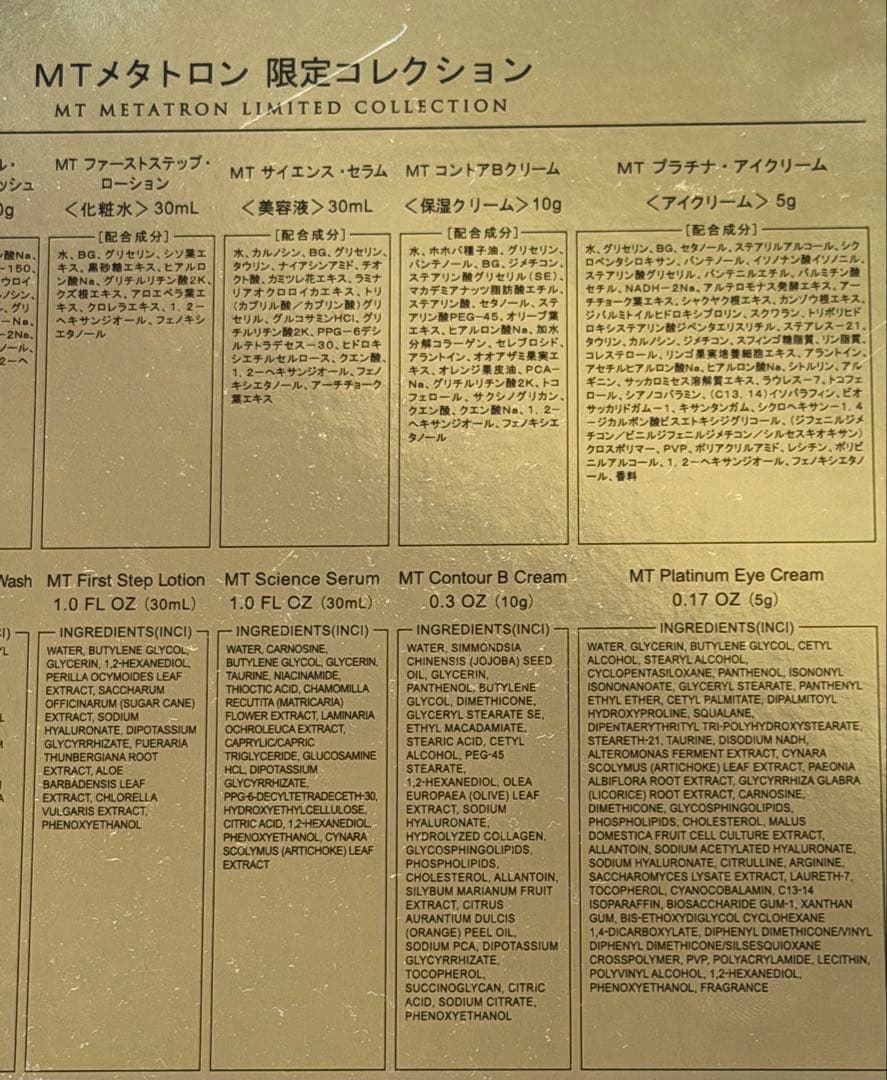 MTメタトロン 限定コレクション
MT METATRON LIMITED COLLECTION
ル・
ッシュ
0g
ン酸Na、
-150、
ウロイ
ノシン、
、グリ
-Na、
-2Na、
ノール、
2-ヘ
MT ファーストステップ・
ローション
＜化粧水＞30mL
[配合成分]
水、BG、グリセリン、シソ葉エ
キス、黒砂糖エキス、ヒアルロ
ン酸Na、グリチルリチン酸2K、
クズ根エキス、アロエベラ葉エ
キス、クロレラエキス、1，2-
ヘキサンジオール、フェノキシ
エタノール
MT サイエンス・セラム
＜美容液＞30mL
[配合成分]
水、カルノシン、BG、グリセリン、
タウリン、ナイアシンアミド、チオ
クト酸、カミツレ花エキス、ラミナ
リアオクロロイカエキス、トリ
(カプリル酸／カプリン酸)グリ
セリル、グルコサミンHCl、グリ
チルリチン酸2K、PPG-6デシ
ルテトラデセス-30、ヒドロキ
シエチルセルロース、クエン酸、
1，2-ヘキサンジオール、フェノ
キシエタノール、アーチチョーク
葉エキス
MT コントアBクリーム
＜保湿クリーム＞10g
[配合成分]
水、ホホバ種子油、グリセリン、
パンテノール、BG、ジメチコン、
ステアリン酸グリセリル(SE)、
マカデミアナッツ脂肪酸エチル、
ステアリン酸、セタノール、ステ
アリン酸PEG-45、オリーブ葉
エキス、ヒアルロン酸Na、加水
分解コラーゲン、セレブロシド、
アラントイン、オオアザミ果実エ
キス、オレンジ果皮油、PCA-
Na、グリチルリチン酸2K、トコ
フェロール、サクシノグリカン、
クエン酸、クエン酸Na、1，2-
ヘキサンジオール、フェノキシエ
タノール
MT プラチナ・アイクリーム
＜アイクリーム＞ 5g
[配合成分]
水、グリセリン、BG、セタノール、ステアリルアルコール、シク
ロペンタシロキサン、パンテノール、イソノナン酸イソノニル、
ステアリン酸グリセリル、パンテニルエチル、パルミチン酸
セチル、NADH-2Na、アルテロモナス発酵エキス、アー
チチョーク葉エキス、シャクヤク根エキス、カンゾウ根エキス、
ジパルミトイルヒドロキシプロリン、スクワラン、トリポリヒド
ロキシステアリン酸ジペンタエリスリチル、ステアレス-21、
タウリン、カルノシン、ジメチコン、スフィンゴ糖脂質、リン脂質、
コレステロール、リンゴ果実培養細胞エキス、アラントイン、
アセチルヒアルロン酸Na、ヒアルロン酸Na、シトルリン、アル
ギニン、サッカロミセス溶解質エキス、ラウレス-7、トコフェ
ロール、シアノコバラミン、(C13，14)イソパラフィン、ビオ
サッカリドガム-1、キサンタンガム、シクロヘキサン-1，4
-ジカルボン酸ビスエトキシジグリコール、(ジフェニルジメ
チコン／ビニルジフェニルジメチコン／シルセスキオキサン)
クロスポリマー、PVP、ポリアクリルアミド、レシチン、ポリビ
ニルアルコール、1，2-ヘキサンジオール、フェノキシエタノ
ール、香料
Wash
CI)
MT First Step Lotion
1.0 FL OZ (30mL)
INGREDIENTS(INCI)
WATER, BUTYLENE GLYCOL,
GLYCERIN, 1,2-HEXANEDIOL,
PERILLA OCYMOIDES LEAF
EXTRACT, SACCHARUM
OFFICINARUM (SUGAR CANE)
EXTRACT, SODIUM
HYALURONATE, DIPOTASSIUM
GLYCYRRHIZATE, PUERARIA
THUNBERGIANA ROOT
EXTRACT, ALOE
BARBADENSIS LEAF
EXTRACT, CHLORELLA
VULGARIS EXTRACT,
PHENOXYETHANOL
MT Science Serum
1.0 FL OZ (30mL)
INGREDIENTS(INCI)
WATER, CARNOSINE,
BUTYLENE GLYCOL, GLYCERIN,
TAURINE, NIACINAMIDE,
THIOCTIC ACID, CHAMOMILLA
RECUTITA (MATRICARIA)
FLOWER EXTRACT, LAMINARIA
OCHROLEUCA EXTRACT,
CAPRYLIC/CAPRIC
TRIGLYCERIDE, GLUCOSAMINE
HCL, DIPOTASSIUM
GLYCYRRHIZATE,
PPG-6-DECYLTETRADECETH-30,
HYDROXYETHYLCELLULOSE,
CITRIC ACID, 1,2-HEXANEDIOL,
PHENOXYETHANOL, CYNARA
SCOLYMUS (ARTICHOKE) LEAF
EXTRACT
MT Contour B Cream
0.3 OZ (10g)
INGREDIENTS(INCI)
WATER, SIMMONDSIA
CHINENSIS (JOJOBA) SEED
OIL, GLYCERIN,
PANTHENOL, BUTYLENE
GLYCOL, DIMETHICONE,
GLYCERYL STEARATE SE,
ETHYL MACADAMIATE,
STEARIC ACID, CETYL
ALCOHOL, PEG-45
STEARATE,
1,2-HEXANEDIOL, OLEA
EUROPAEA (OLIVE) LEAF
EXTRACT, SODIUM
HYALURONATE,
HYDROLYZED COLLAGEN,
GLYCOSPHINGOLIPIDS,
PHOSPHOLIPIDS,
CHOLESTEROL, ALLANTOIN,
SILYBUM MARIANUM FRUIT
EXTRACT, CITRUS
AURANTIUM DULCIS
(ORANGE) PEEL OIL,
SODIUM PCA, DIPOTASSIUM
GLYCYRRHIZATE,
TOCOPHEROL,
SUCCINOGLYCAN, CITRIC
ACID, SODIUM CITRATE,
PHENOXYETHANOL
MT Platinum Eye Cream
0.17 OZ (5g)
INGREDIENTS(INCI)
WATER, GLYCERIN, BUTYLENE GLYCOL, CETYL
ALCOHOL, STEARYL ALCOHOL,
CYCLOPENTASILOXANE, PANTHENOL, ISONONYL
ISONONANOATE, GLYCERYL STEARATE, PANTHENYL
ETHYL ETHER, CETYL PALMITATE, DIPALMITOYL
HYDROXYPROLINE, SQUALANE,
DIPENTAERYTHRITYL TRI-POLYHYDROXYSTEARATE,
STEARETH-21, TAURINE, DISODIUM NADH,
ALTEROMONAS FERMENT EXTRACT, CYNARA
SCOLYMUS (ARTICHOKE) LEAF EXTRACT, PAEONIA
ALBIFLORA ROOT EXTRACT, GLYCYRRHIZA GLABRA
(LICORICE) ROOT EXTRACT, CARNOSINE,
DIMETHICONE, GLYCOSPHINGOLIPIDS,
PHOSPHOLIPIDS, CHOLESTEROL, MALUS
DOMESTICA FRUIT CELL CULTURE EXTRACT,
ALLANTOIN, SODIUM ACETYLATED HYALURONATE,
SODIUM HYALURONATE, CITRULLINE, ARGININE,
SACCHAROMYCES LYSATE EXTRACT, LAURETH-7,
TOCOPHEROL, CYANOCOBALAMIN, C13-14
ISOPARAFFIN, BIOSACCHARIDE GUM-1, XANTHAN
GUM, BIS-ETHOXYDIGLYCOL CYCLOHEXANE
1,4-DICARBOXYLATE, DIPHENYL DIMETHICONE/VINYL
DIPHENYL DIMETHICONE/SILSESQUIOXANE
CROSSPOLYMER, PVP, POLYACRYLAMIDE, LECITHIN,
POLYVINYL ALCOHOL, 1,2-HEXANEDIOL,
PHENOXYETHANOL, FRAGRANCE